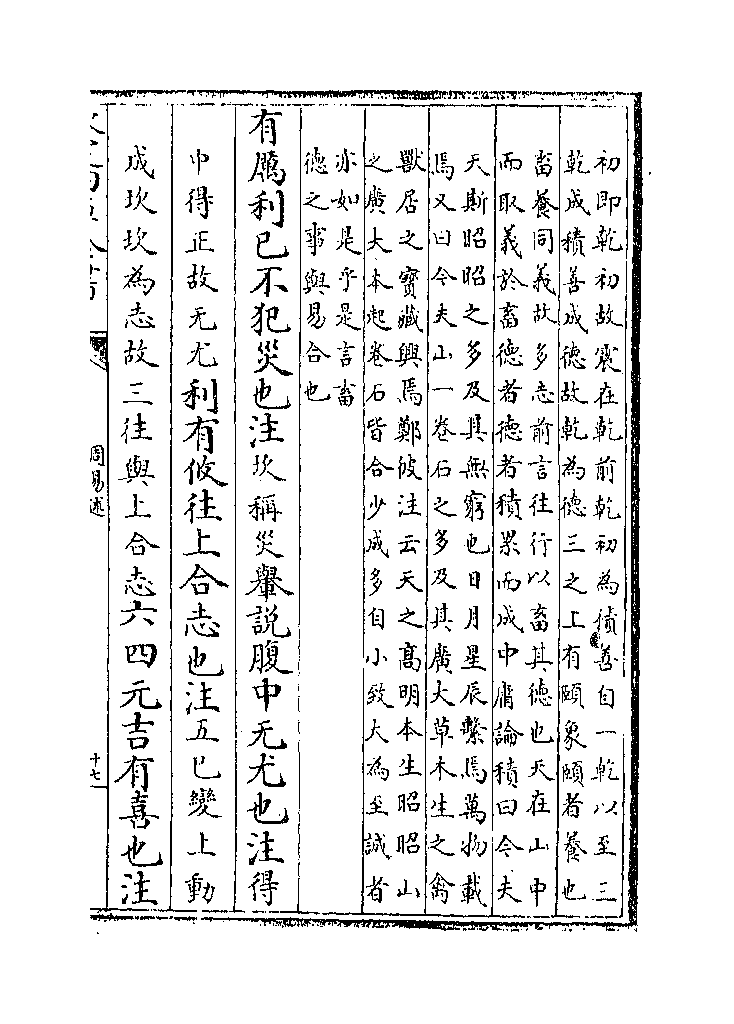 初即乾初故震在乾前乾初為積善自一乾以至三
乾成積善成德故乾為德三之上有頤象頤者養也
畜養同義故多志前言往行以畜其德也天在山中
而取義於畜德者德者積累而成中庸論積曰今夫
天斯昭昭之多及其無窮也日月星辰繫焉萬物載
焉又曰今夫山一卷石之多及其廣大草木生之禽
獸居之寶藏興焉鄭彼注云天之高明本生昭昭山
之廣大本起卷石皆合少成多自小致大為至誠者
亦如是乎是言畜
德之事與易合也
有厲利已不犯災也注坎稱災轝説腹中无尤也注得
中得正故无尤利有攸往上合志也注五已變上動
成坎坎為志故三往與上合志六四元吉有喜也注
周易述
十七